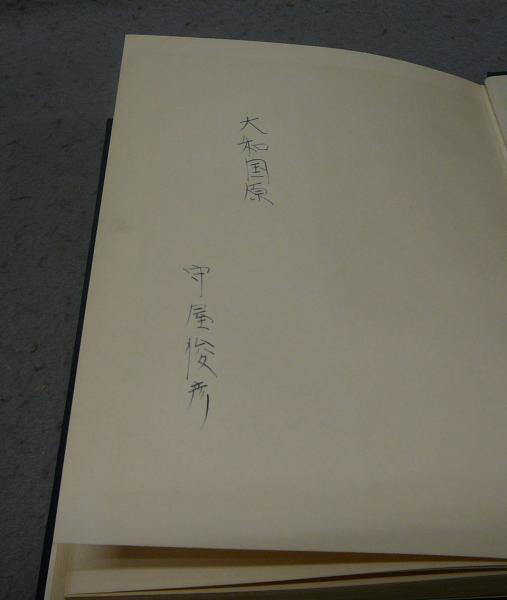 大和国原
守屋俊彦